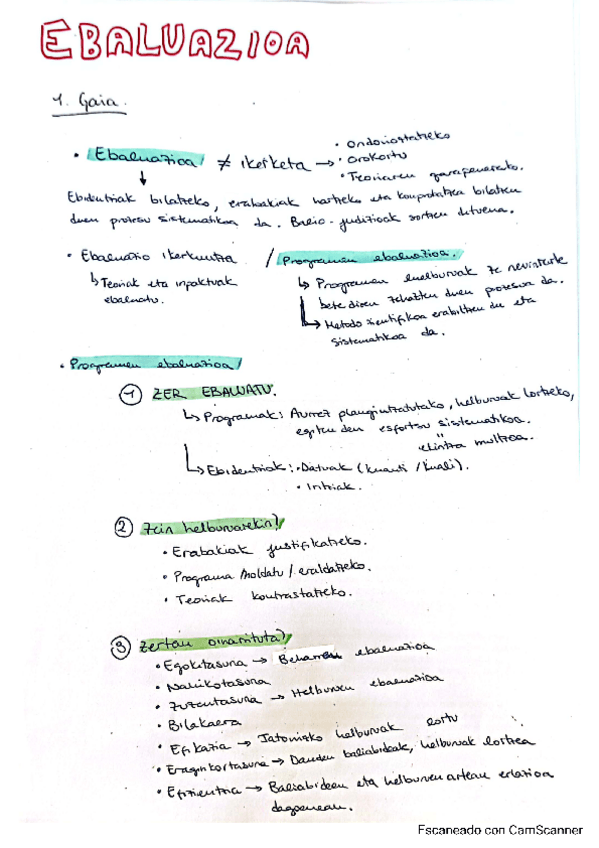 EBALUAZIOA
1. Gaia.
• Ebaluazioa ≠ ikerketa → • Ondorioztatzeko
• Orokortu
• Teoriaren garapenerako.
Ebidentziak bilatzeko, erabakiak hartzeko eta konprobatzea bilatzen
duen prozesu sistematikoa da. Balio-judizioak sortzen dituena.
• Ebaluazio ikerkuntza / Programen ebaluazioa.
↳ Teoriak eta inpaktuak
ebaluatu.
↳ Programen helburuak ze neurritarte
bete diren zehazten duen prozesua da.
↳ Metodo zientifikoa erabiltzen du eta
sistematikoa da.
• Programen ebaluazioa
1 ZER EBALUATU.
↳ Programak: Aurrez plangintzatutako, helburuak lortzeko,
egiten den esfortzu sistematikoa.
"
ekintza multzoa.
↳ Ebidentziak: • Datuak (kuanti / kuali).
• Iritziak.
2 Zein helbururekin?
• Erabakiak justifikatzeko.
• Programa moldatu / eraldatzeko.
• Teoriak kontrastatzeko.
3 Zertan oinarrituta?
• Egokitasuna → Beharren ebaluazioa
• Nahikotasuna
• Zuzentasuna → Helburuen ebaluazioa
• Bilakaera
• Efikazia → Jatorrizko helburuak lortu
• Eraginkortasuna → Dauden baliabideak, helburuak lortzea
• Efizientzia → Baliabideen eta helburuen artean erlazioa
dagoenean.
Escaneado con CamScanner